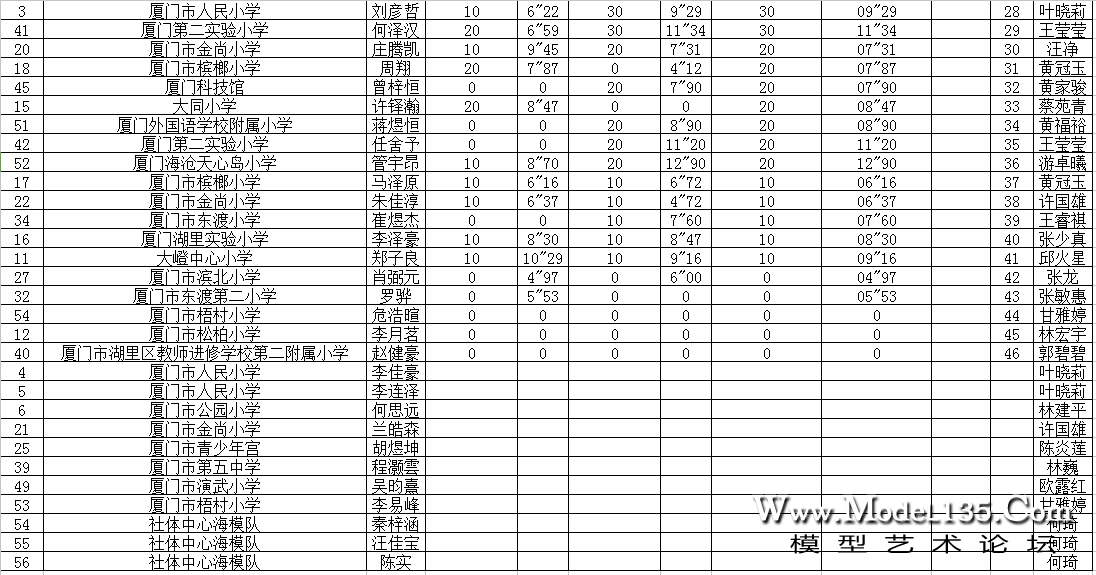 3 厦门市人民小学 刘彦哲 10 6"22 30 9"29 30 09"29 28 叶晓莉
41 厦门第二实验小学 何泽汉 20 6"59 30 11"34 30 11"34 29 王莹莹
20 厦门市金尚小学 庄腾凯 10 9"45 20 7"31 20 07"31 30 汪净
18 厦门市槟榔小学 周翔 20 7"87 0 4"12 20 07"87 31 黄冠玉
45 厦门科技馆 曾梓恒 0 0 20 7"90 20 07"90 32 黄家骏
15 大同小学 许铎瀚 20 8"47 0 0 20 08"47 33 蔡苑青
51 厦门外国语学校附属小学 蒋煜恒 0 0 20 8"90 20 08"90 34 黄福裕
42 厦门第二实验小学 任舍予 0 0 20 11"20 20 11"20 35 王莹莹
52 厦门海沧天心岛小学 管宇昂 10 8"70 20 12"90 20 12"90 36 游卓曦
17 厦门市槟榔小学 马泽原 10 6"16 10 6"72 10 06"16 37 黄冠玉
22 厦门市金尚小学 朱佳淳 10 6"37 10 4"72 10 06"37 38 许国雄
34 厦门市东渡小学 崔煜杰 0 0 10 7"60 10 07"60 39 王睿祺
16 厦门湖里实验小学 李泽豪 10 8"30 10 8"47 10 08"30 40 张少真
11 大嶝中心小学 郑子良 10 10"29 10 9"16 10 09"16 41 邱火星
27 厦门市滨北小学 肖弼元 0 4"97 0 6"00 0 04"97 42 张龙
32 厦门市东渡第二小学 罗骅 0 5"53 0 0 0 05"53 43 张敏惠
54 厦门市梧村小学 危浩暄 0 0 0 0 0 0 44 甘雅婷
12 厦门市松柏小学 李月茗 0 0 0 0 0 0 45 林宏宇
40 厦门市湖里区教师进修学校第二附属小学 赵健豪 0 0 0 0 0 0 46 郭碧碧
4 厦门市人民小学 李佳豪 叶晓莉
5 厦门市人民小学 李连泽 叶晓莉
6 厦门市公园小学 何思远 林建平
21 厦门市金尚小学 兰皓森 许国雄
25 厦门市青少年宫 胡煜坤 陈炎莲
39 厦门市第五中学 程灏雲 林巍
49 厦门市演武小学 吴昀熹 欧露红
53 厦门市梧村小学 李易峰 甘雅婷
54 社体中心海模队 秦梓涵 何琦
55 社体中心海模队 汪佳宝 何琦
56 社体中心海模队 陈实 何琦
Www.Model135.Com
模型艺术论坛